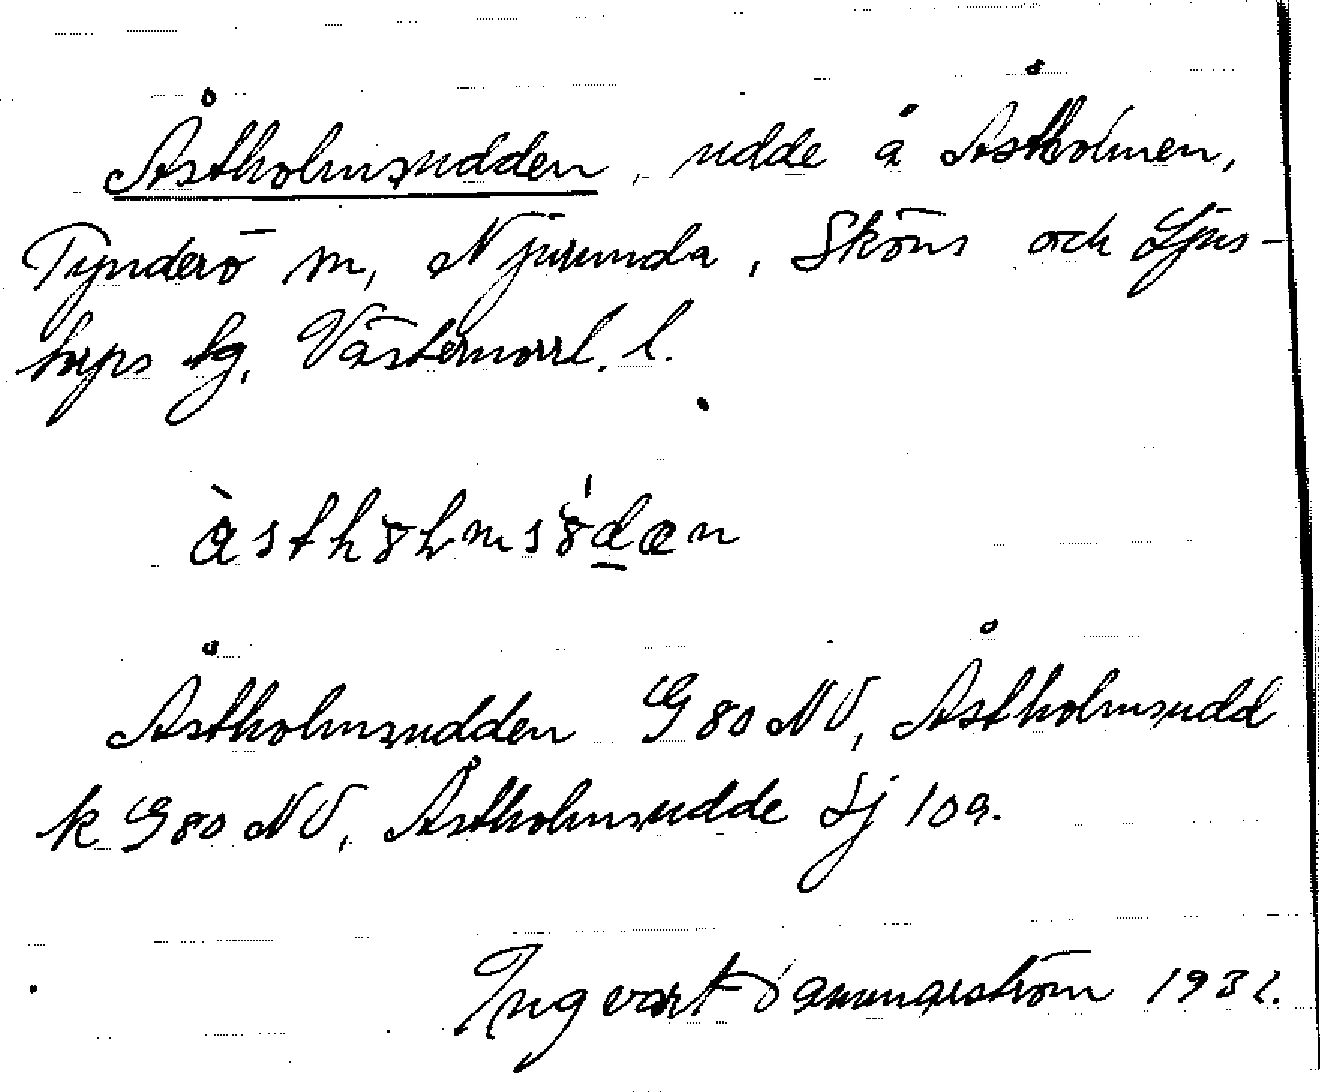 Åstholmsudden, udde å Åstholmen,
Tynderö sn, Njurunda, Sköns och Ljus-
torps tg, Västernorrl. l.
àsthɞlmsɞ́dæn
Åstholmsudden G 80 NV, Åstholmsudd
k G 80 NV, Åstholmsudde Lj 109.
Ingvart 1931.